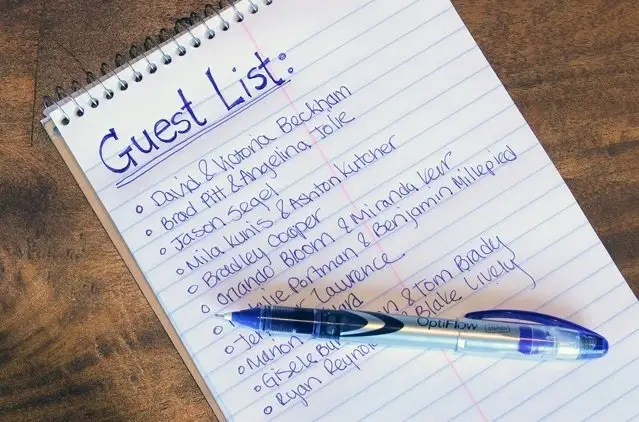 Guest List:
David & Victoria Beckham
Brad Pitt & Angelina Jolie
Jason Segel
Mila Kunis & Ashton Kutcher
Bradley Cooper
Orlando Bloom & Miranda Kerr
Portman & Benjamin Millepied
Lawrence
Marion
Gisele & Tom Brady
Ryan Blake Lively
OptiFlow